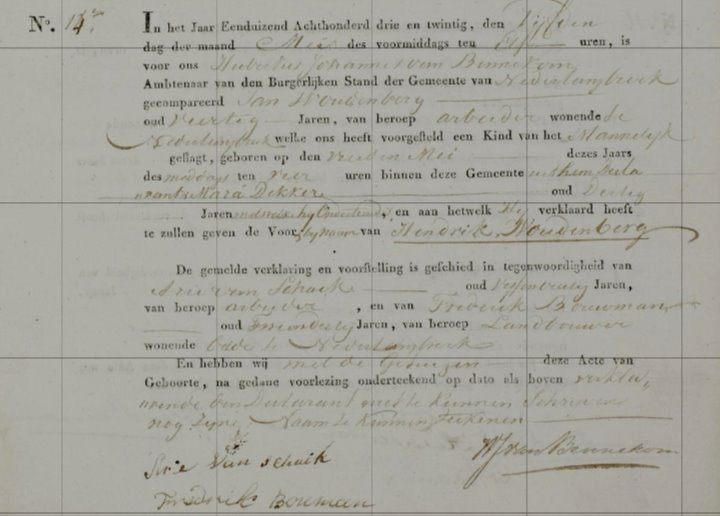 No. 14. In het Jaar Eenduizend Achthonderd drie en twintig, den Vijfden
dag der maand Mei des voormiddags ten Elf uren, is
voor ons Hubertus Johannes van Bennekom
Ambtenaar van den Burgerlijken Stand der Gemeente van Nederlangbroek
gecompareerd Jan Woudenberg
oud Veertig Jaren, van beroep arbeider wonende te
Nederlangbroek welke ons heeft voorgesteld een Kind van het Mannelijk
geslagt, geboren op den vierden Mei dezes Jaars
des middags ten vier uren binnen deze Gemeente uit hem Decla
rant & Mara Dekker oud Dertig
Jaren en aan hetwelk Hij verklaard heeft
te zullen geven de Voor bynaam van Hendrik, Woudenberg
De gemelde verklaring en voorstelling is geschied in tegenwoordigheid van
Arie van Schaik oud Jaren,
van beroep arbeider, en van Frederik Bouwman
oud Jaren, van beroep Landbouwer
wonende beide te Nederlangbroek
En hebben wij met de Getuigen deze Acte van
Geboorte, na gedane voorlezing onderteekend op dato als boven verkla„
rende den Declarant niet te kunnen Schrijven
nog zijne Naam te kunnen Teekenen
Arie Van schaik HJ van Bennekom
Fredrik Bouman